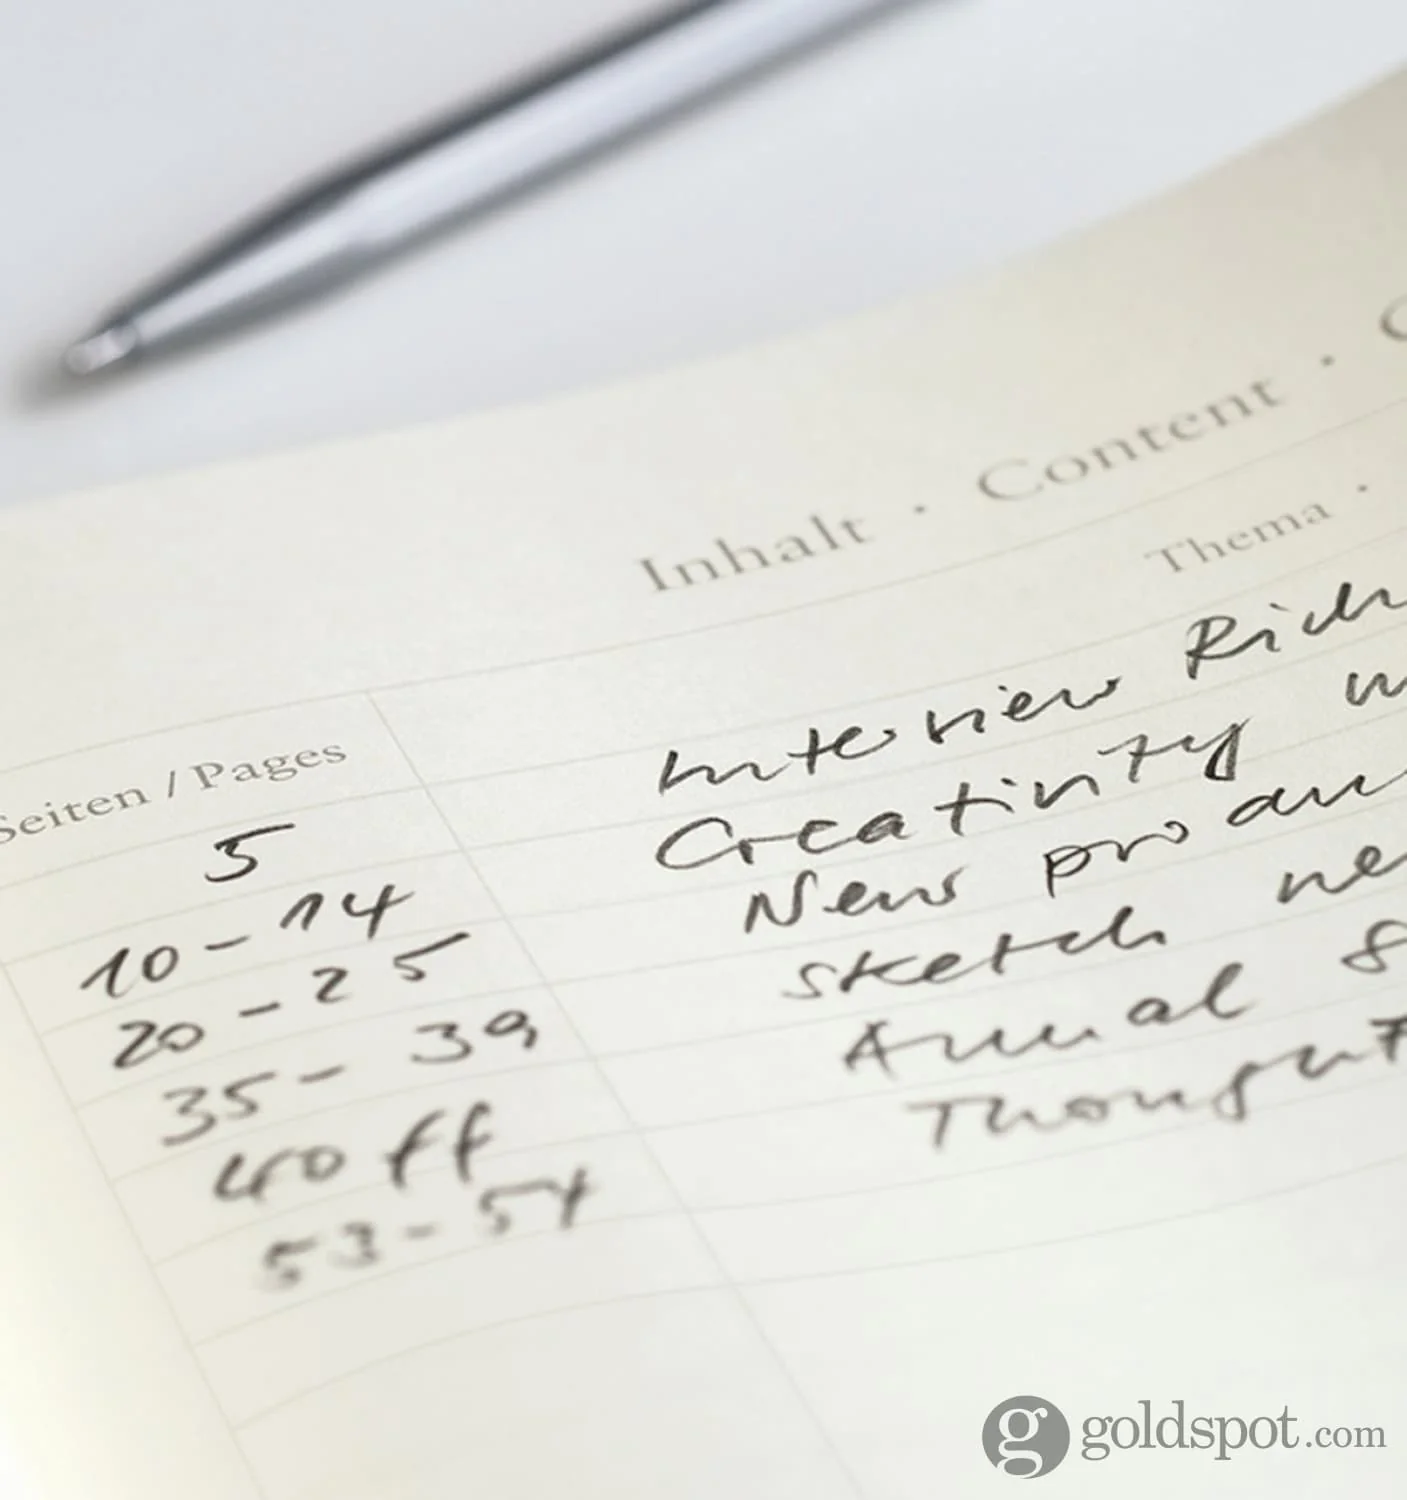 Inhalt · Content ·
Thema ·
Seiten / Pages
5 Interview
10 - 14 Creativity
20 - 25 New pro
35 - 39 Sketch
40 ff Annual
53 - 54 Thought
goldspot.com